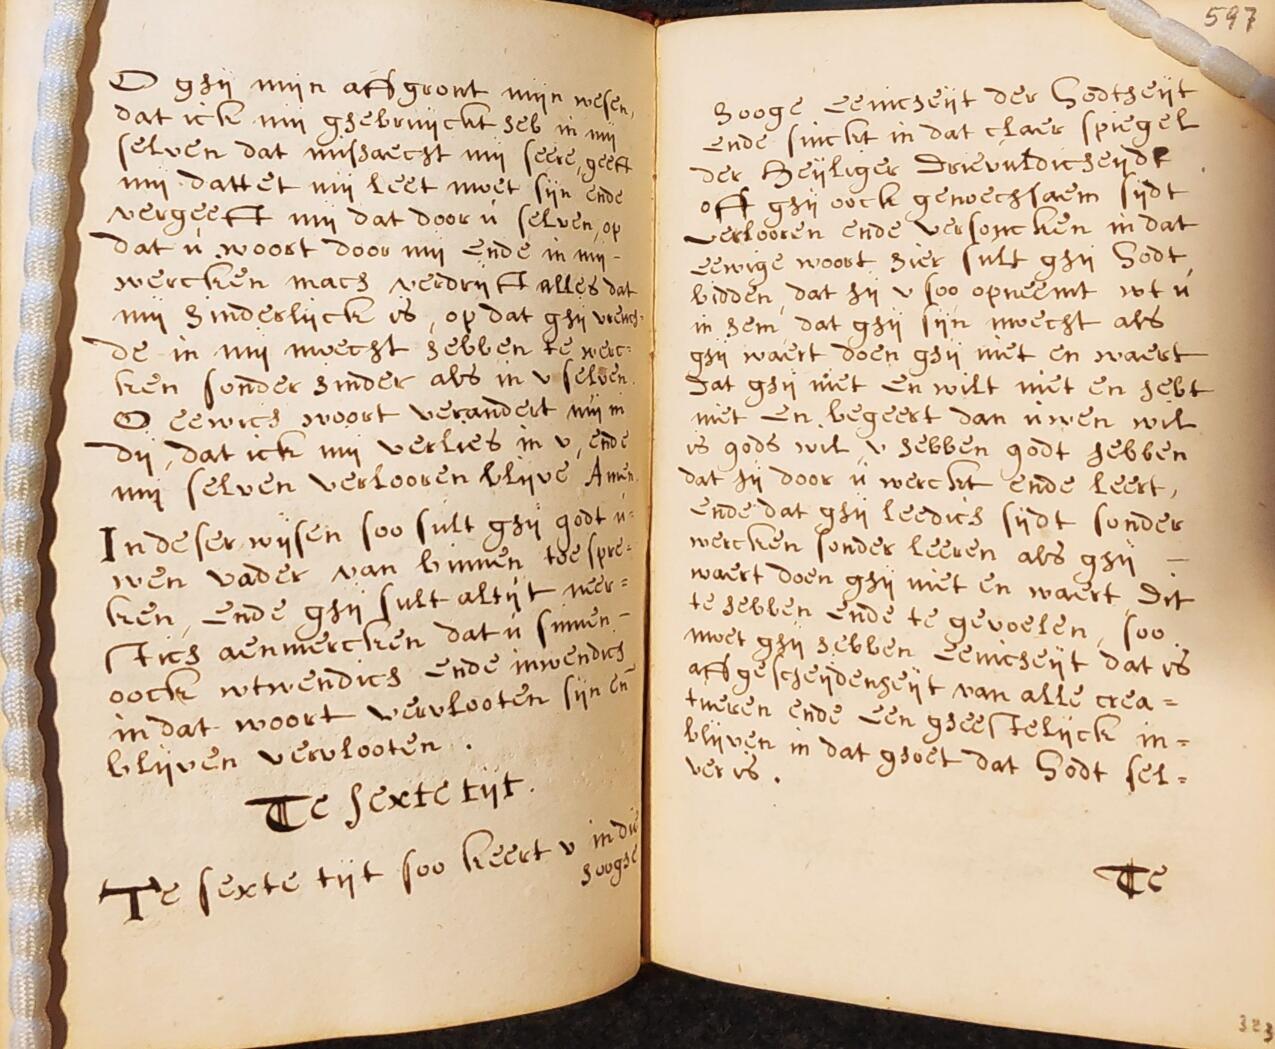 O ghij mijn affgront mijn wesen,
dat ick mij ghebruijckt heb in mij
selven dat mishaecht mij seere, geeft
mij dattet mij leet moet sijn ende
vergeeft mij dat door ú selven, op
dat ú woort door mij ende in mij -
wercken mach verdrijft alles dat
mij hinderlijck is, op dat ghij vreuch=
de in mij moecht hebben te werc=
ken sonder hinder als in v selven.
O eewich woort verandert mij in
dij, dat ick mij verlies in v, ende
mij selven verlooren blijve Amen.
In deser wijsen soo sult ghij godt ú=
wen vader van binnen toe spre=
ken, ende ghij sult altijt neer=
stich aenmercken dat ú sinnen -
oock wtwendich ende inwendich
in dat woort vervlooten sijn en̄
blijven vervlooten.
Te sexte tijt.
Te sexte tijt soo keert v in die
hooghe
597
hooge eenicheijt der Godtheijt
ende sinckt in dat claer spiegel
der heijliger Drievuldicheijdt
off ghij oock genoechsaem sijdt
verlooren ende versoncken in dat
eewige woort hier sult ghij Godt
bidden, dat hij v soo opneemt wt ú
in hem, dat ghij sijn moecht als
ghij waert doen ghij niet en waert
Dat ghij niet en wilt niet en hebt
niet en begeert dan úwen wil
is gods wil, v hebben godt hebben
dat hij door ú werckt ende leert,
ende dat ghij leedich sijdt sonder
wercken sonder leeren als ghij -
waert doen ghij niet en waert, Dit
te hebben ende te gevoelen, soo
moet ghij hebben eenicheijt dat is
affgescheijdenheijt van alle crea=
tueren ende een gheestelijck in=
blijven in dat ghoet dat Godt sel=
ver is.
Te
323